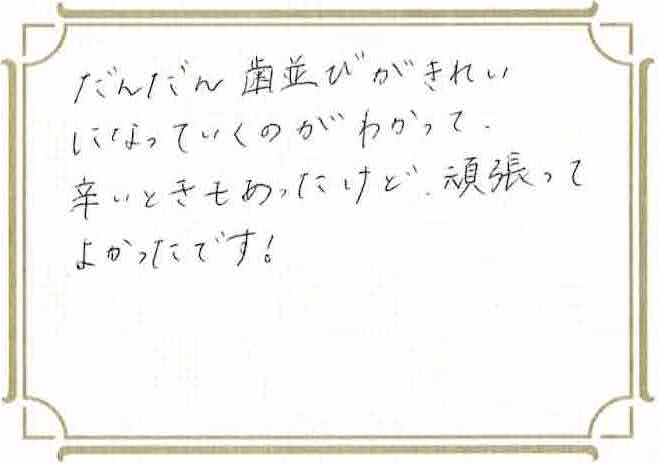 だんだん歯並びがきれい
になっていくのがわかって、
辛いときもあったけど、頑張って
よかったです!